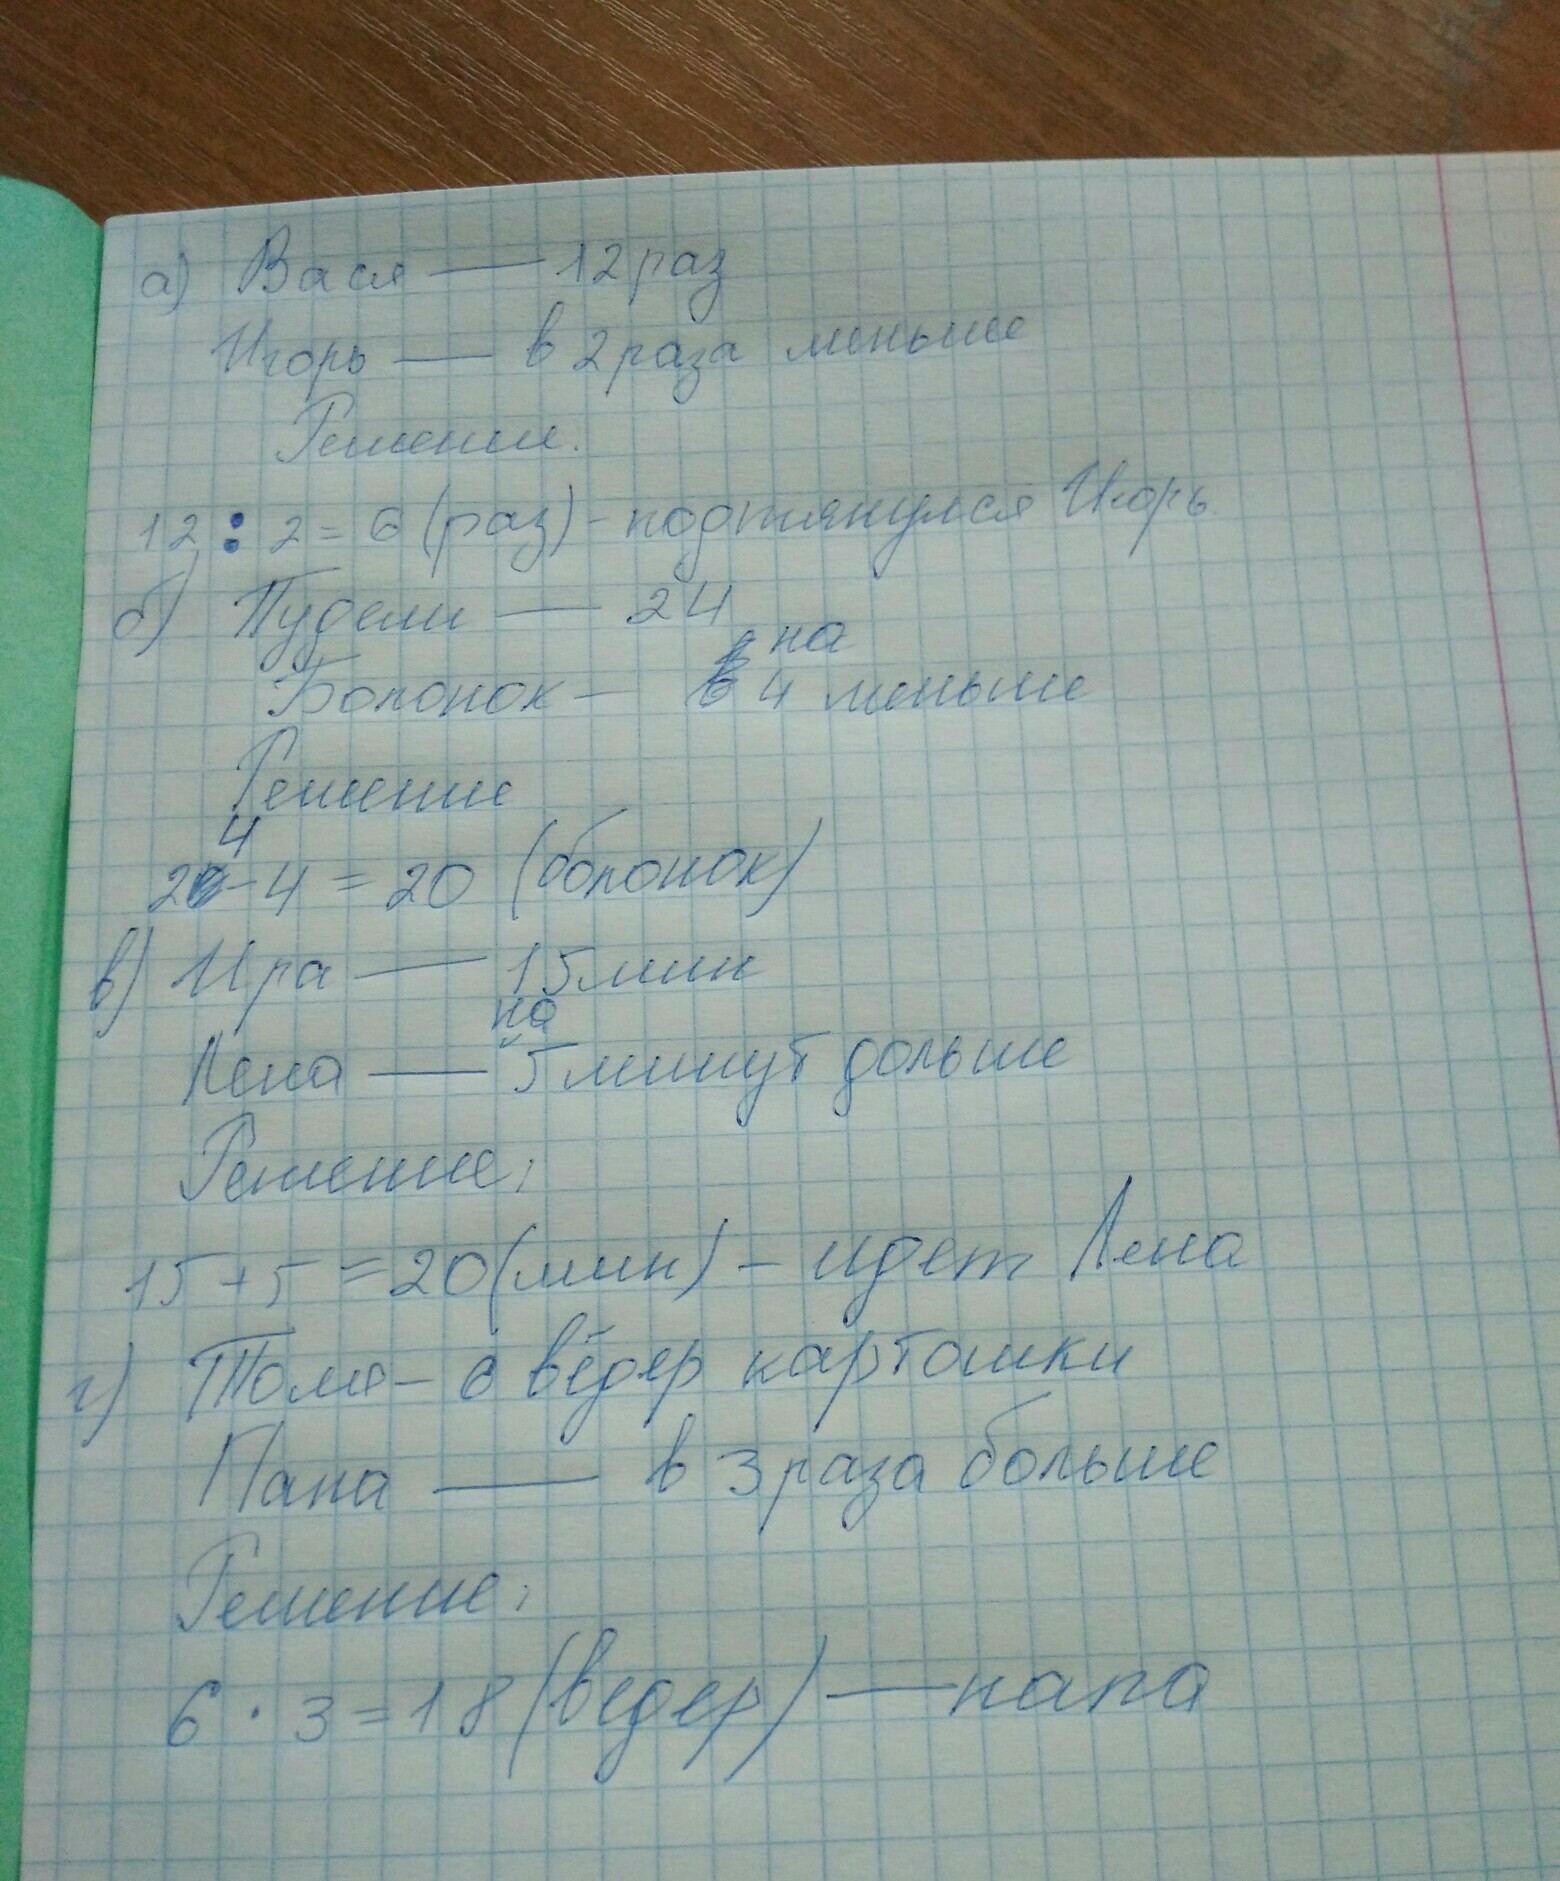 а) Вася — 12 раз
Игорь — в 2 раза меньше
Решение.
12 : 2 = 6 (раз) - подтянулся Игорь.
б) Пудели — 24
на
Болонок - 4 меньше
Решение
24 - 4 = 20 (болонок)
в) Ира — 15 мин
на
Лена — 5 минут дольше
Решение:
15 + 5 = 20 (мин) - идет Лена
г) Толя - 6 вёдер картошки
Папа — в 3 раза больше
Решение:
6 · 3 = 18 (ведер) — папа